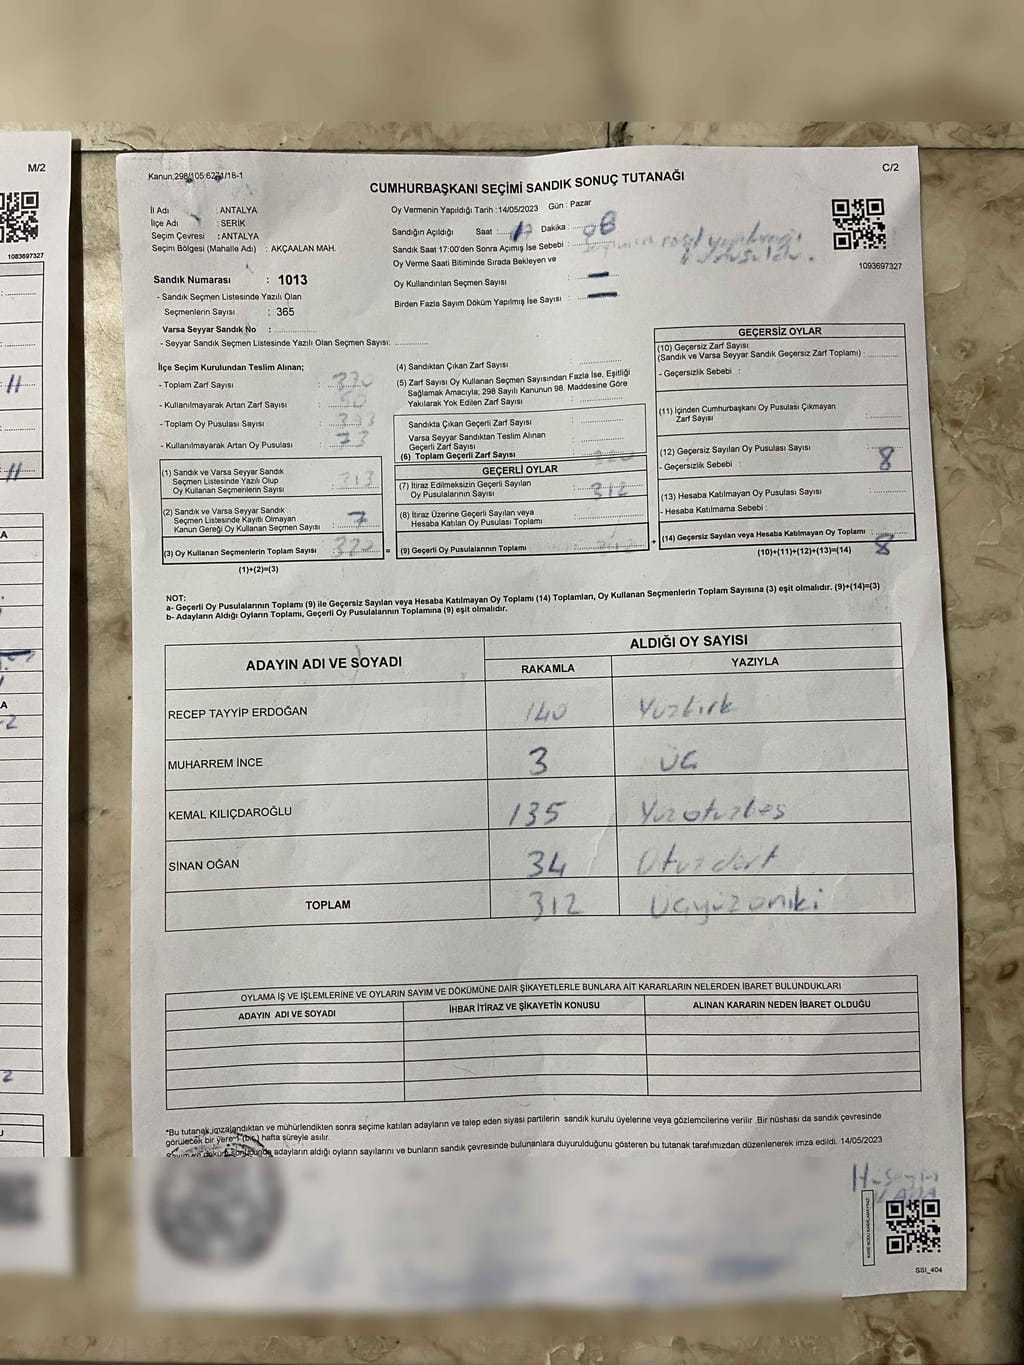 M/2
1083697327
Kanun,298/105-6271/18-1
C/2
CUMHURBAŞKANI SEÇİMİ SANDIK SONUÇ TUTANAĞI
İl Adı : ANTALYA
İlçe Adı : SERİK
Seçim Çevresi : ANTALYA
Seçim Bölgesi (Mahalle Adı) : AKÇAALAN MAH.
Oy Vermenin Yapıldığı Tarih : 14/05/2023 Gün : Pazar
Sandığın Açıldığı Saat : 17 Dakika : 08
Sandık Saat 17:00'den Sonra Açımış İse Sebebi :
Oy Verme Saati Bitiminde Sırada Bekleyen ve
Oy Kullandırılan Seçmen Sayısı : —
Birden Fazla Sayım Döküm Yapılmış İse Sayısı : —
1093697327
Sandık Numarası : 1013
- Sandık Seçmen Listesinde Yazılı Olan
Seçmenlerin Sayısı : 365
Varsa Seyyar Sandık No :
- Seyyar Sandık Seçmen Listesinde Yazılı Olan Seçmen Sayısı:
İlçe Seçim Kurulundan Teslim Alınan;
- Toplam Zarf Sayısı :
- Kullanılmayarak Artan Zarf Sayısı :
- Toplam Oy Pusulası Sayısı :
- Kullanılmayarak Artan Oy Pusulası : 73
(1) Sandık ve Varsa Seyyar Sandık
Seçmen Listesinde Yazılı Olup
Oy Kullanan Seçmenlerin Sayısı : 313
(2) Sandık ve Varsa Seyyar Sandık
Seçmen Listesinde Kayıtlı Olmayan
Kanun Gereği Oy Kullanan Seçmen Sayısı : 7
(3) Oy Kullanan Seçmenlerin Toplam Sayısı : 320
(1)+(2)=(3)
(4) Sandıktan Çıkan Zarf Sayısı :
(5) Zarf Sayısı Oy Kullanan Seçmen Sayısından Fazla İse, Eşitliği
Sağlamak Amacıyla, 298 Sayılı Kanunun 98. Maddesine Göre
Yakılarak Yok Edilen Zarf Sayısı :
Sandıkta Çıkan Geçerli Zarf Sayısı :
Varsa Seyyar Sandıktan Teslim Alınan
Geçerli Zarf Sayısı :
(6) Toplam Geçerli Zarf Sayısı : 320
GEÇERLİ OYLAR
(7) İtiraz Edilmeksizin Geçerli Sayılan
Oy Pusulalarının Sayısı : 312
(8) İtiraz Üzerine Geçerli Sayılan veya
Hesaba Katılan Oy Pusulası Toplamı :
= (9) Geçerli Oy Pusulalarının Toplamı :
GEÇERSİZ OYLAR
(10) Geçersiz Zarf Sayısı
(Sandık ve Varsa Seyyar Sandık Geçersiz Zarf Toplamı) :
- Geçersizlik Sebebi :
(11) İçinden Cumhurbaşkanı Oy Pusulası Çıkmayan
Zarf Sayısı :
(12) Geçersiz Sayılan Oy Pusulası Sayısı : 8
- Geçersizlik Sebebi :
(13) Hesaba Katılmayan Oy Pusulası Sayısı :
- Hesaba Katılmama Sebebi :
+ (14) Geçersiz Sayılan veya Hesaba Katılmayan Oy Toplamı : 8
(10)+(11)+(12)+(13)=(14)
NOT:
a- Geçerli Oy Pusulalarının Toplamı (9) ile Geçersiz Sayılan veya Hesaba Katılmayan Oy Toplamı (14) Toplamları, Oy Kullanan Seçmenlerin Toplam Sayısına (3) eşit olmalıdır. (9)+(14)=(3)
b- Adayların Aldığı Oyların Toplamı, Geçerli Oy Pusulalarının Toplamına (9) eşit olmalıdır.
ADAYIN ADI VE SOYADI ALDIĞI OY SAYISI
RAKAMLA YAZIYLA
RECEP TAYYİP ERDOĞAN 140 Yüzkırk
MUHARREM İNCE 3 üç
KEMAL KILIÇDAROĞLU 135 Yüzotuzbeş
SİNAN OĞAN 34 Otuzdört
TOPLAM 312 Üçyüzoniki
OYLAMA İŞ VE İŞLEMLERİNE VE OYLARIN SAYIM VE DÖKÜMÜNE DAİR ŞİKAYETLERLE BUNLARA AİT KARARLARIN NELERDEN İBARET BULUNDUKLARI
ADAYIN ADI VE SOYADI İHBAR İTİRAZ VE ŞİKAYETİN KONUSU ALINAN KARARIN NEDEN İBARET OLDUĞU
*Bu tutanak imzalandıktan ve mühürlendikten sonra seçime katılan adayların ve talep eden siyasi partilerin sandık kurulu üyelerine veya gözlemcilerine verilir .Bir nüshası da sandık çevresinde
görülecek bir yere 1 (bir) hafta süreyle asılır.
Sayım ve döküm sonucunda adayların aldığı oyların sayılarını ve bunların sandık çevresinde bulunanlara duyurulduğunu gösteren bu tutanak tarafımızdan düzenlenerek imza edildi. 14/05/2023
SSI_404